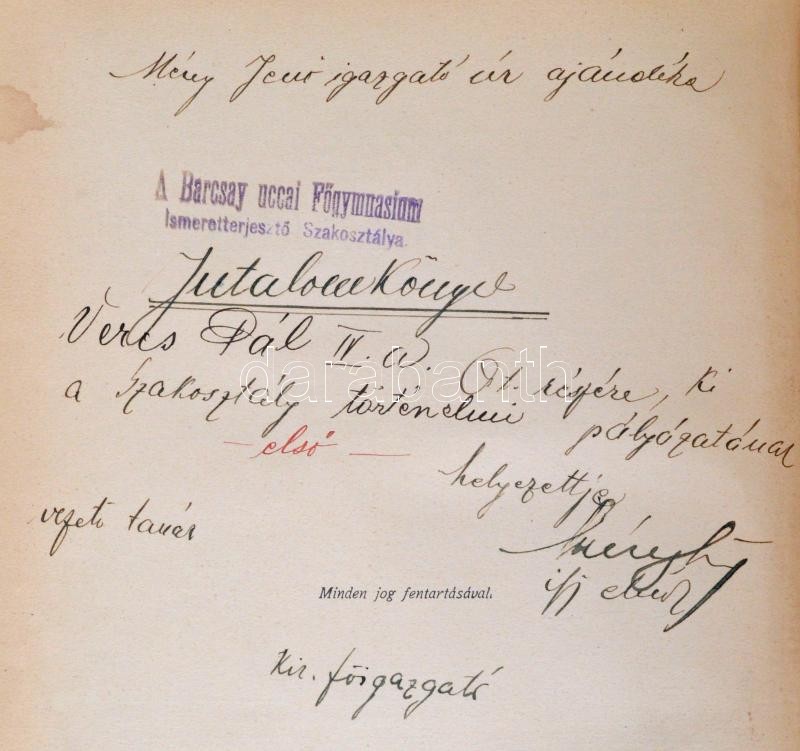 Mény Jenő igazgató úr ajándéka
A Barcsay uccai Főgymnasium
Ismeretterjesztő Szakosztálya.
Jutalomkönyv
Veres Pál IV. a. részére, ki
a szakosztály történelmi pályázatának
— első —
helyezettje
vezető tanár
ifj elnök
Minden jog fentartásával.
Kir. főigazgató
darabanth